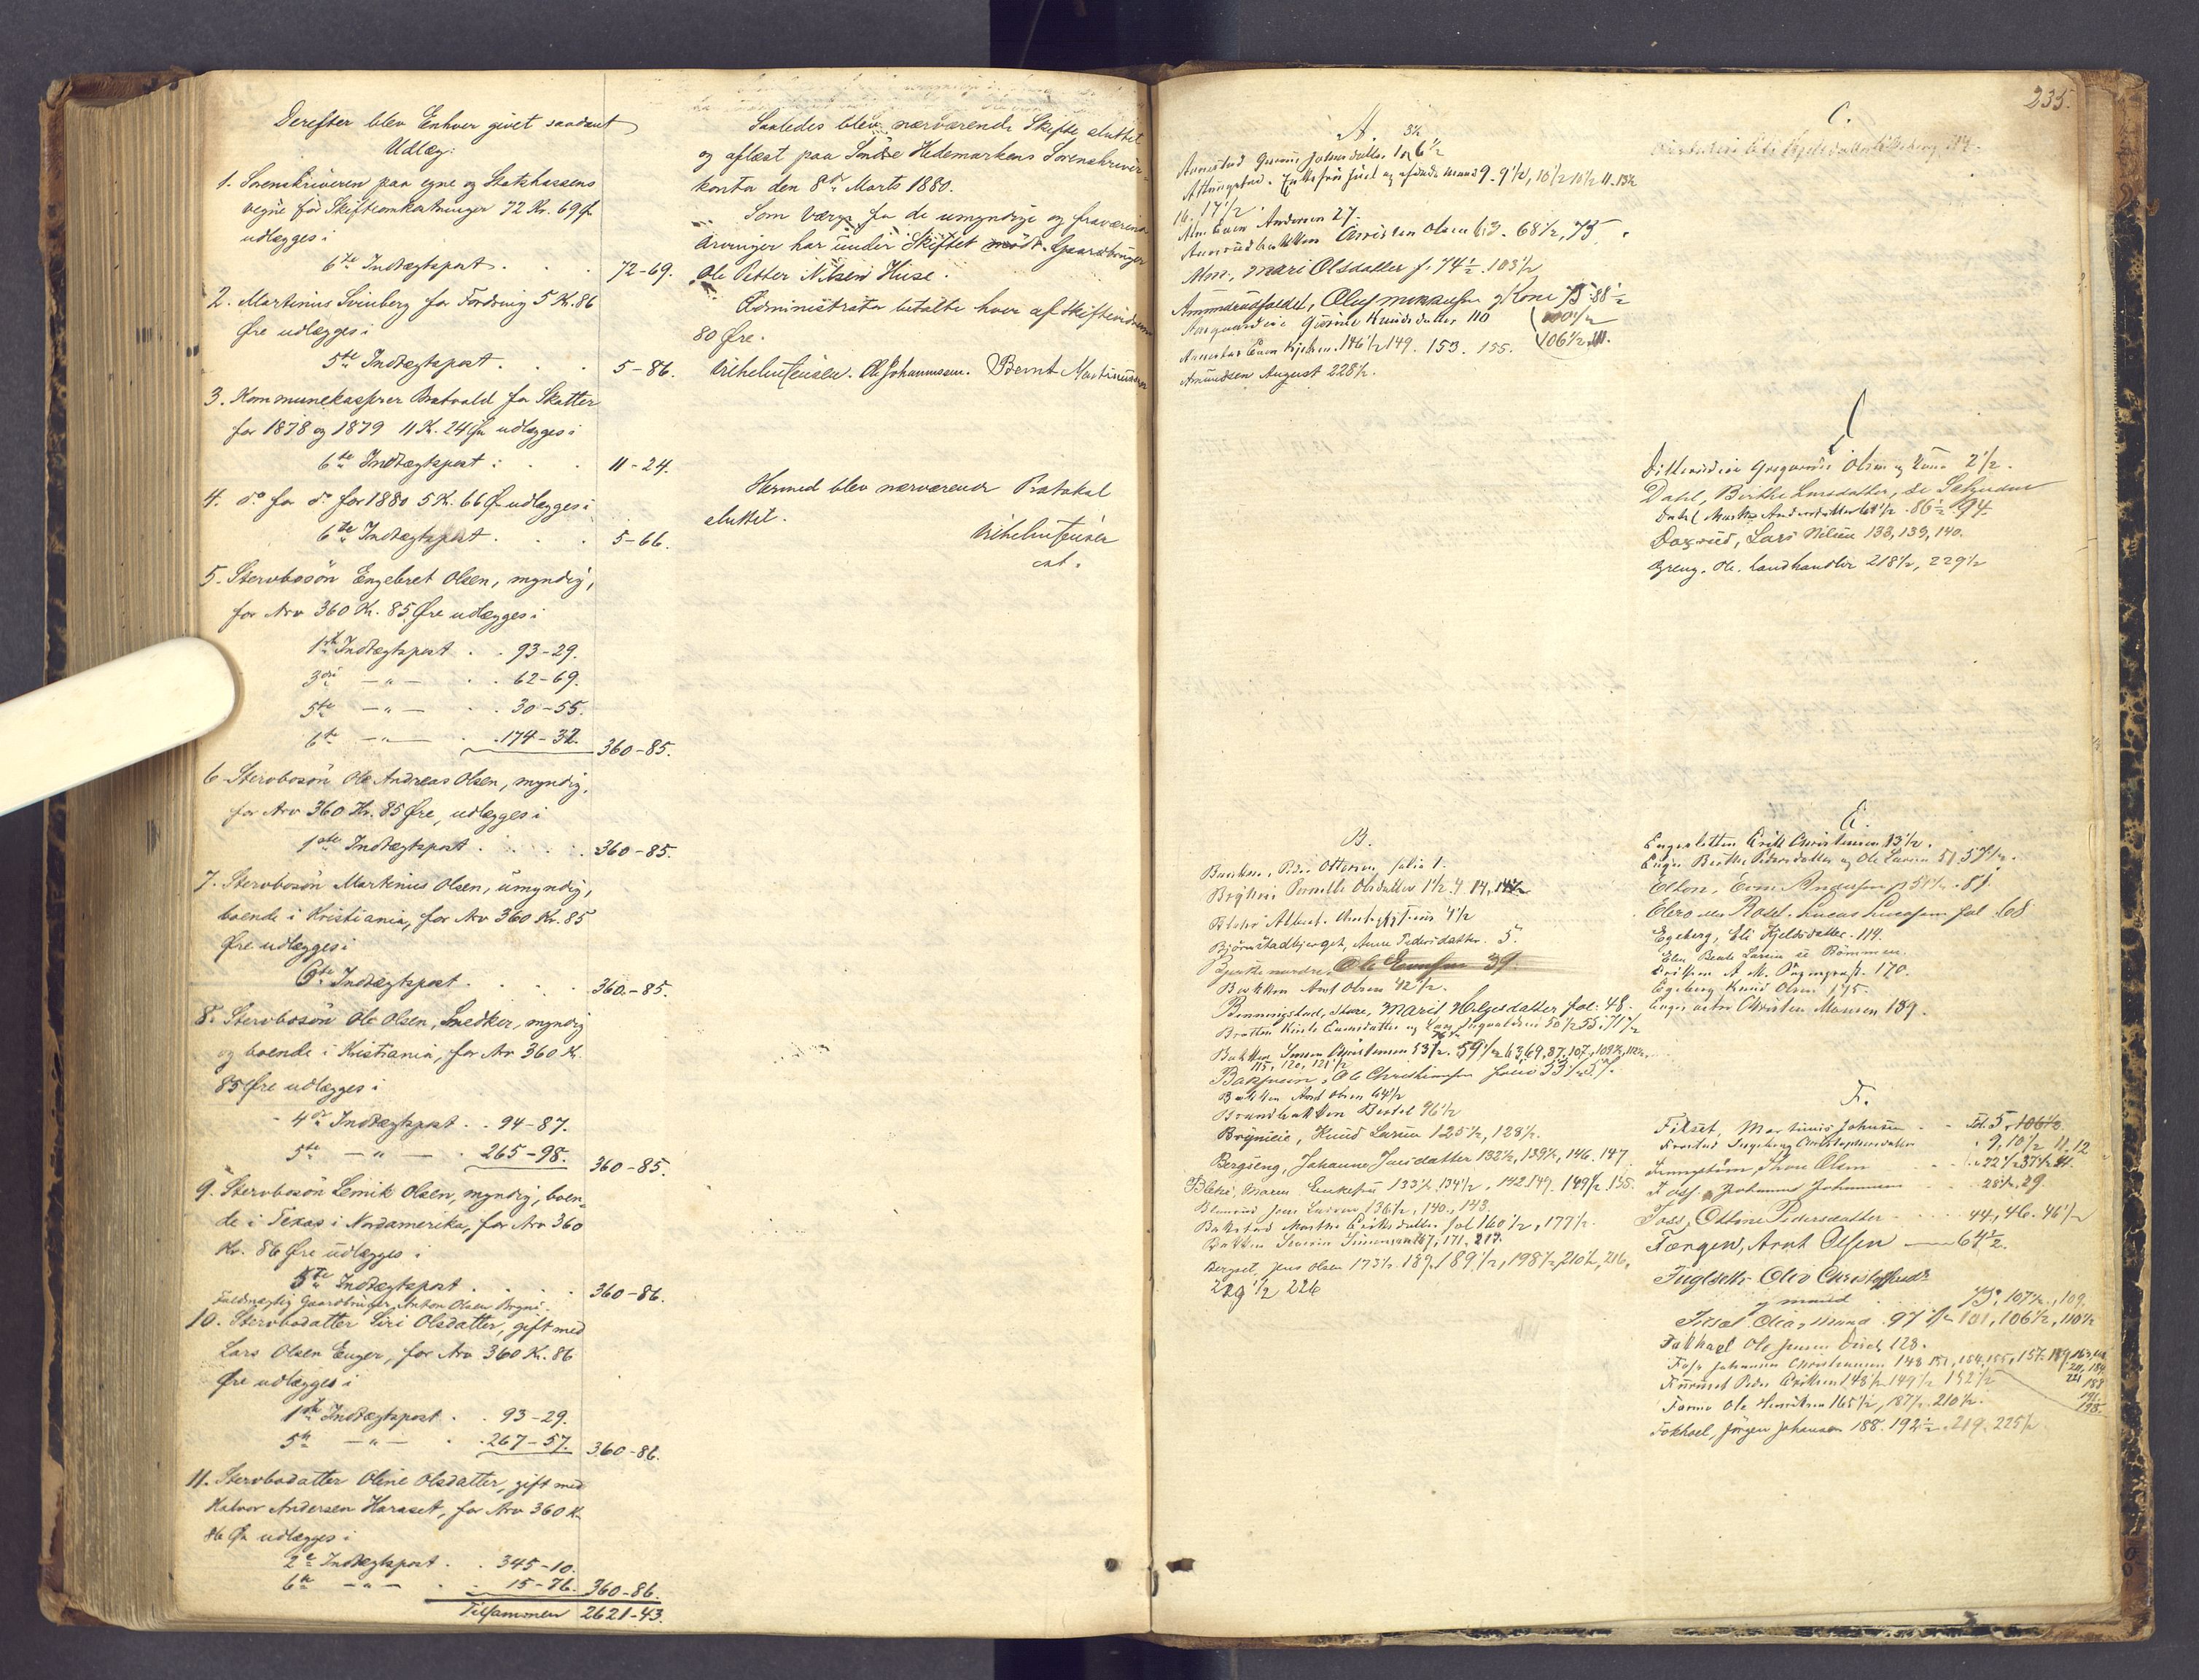 Derefter blev Enhver givet saadant
Udlæg:
1. Sorenskriveren paa egne og Statskassens
vegne for Skifteomkostninger 72 Kr. 69 Ør
udlægges i
6te Indtægtspost . . . 72-69.
2. Martinius Svinberg for Fordring 5 K. 86
Øre udlægges i
5te Indtægtspost . . . 5-86.
3. Kommunekasserer Bratvold for Skatter
for 1878 og 1879 11 K. 24 Ør udlægges i
6te Indtægtspost : . . 11-24.
4. do for do for 1880 5 K. 66 Ø udlægges i
6te Indtægtspost . . . 5-66.
5. Stervbosön Engebret Olsen, myndig,
for Arv 360 K. 85 Øre udlægges i
1ste Indtægtspost . . 93-29.
3die — " — . . 62-69.
5te — " — . . 30-55.
6te — " — . . 174-32. 360-85.
6 Stervbosön Ole Andreas Olsen, myndig,
for Arv 360 Kr. 85 Øre, udlægges i
1ste Indtægtspost . . . 360-85.
7. Stervbosön Martinus Olsen, umyndig,
boende i Kristiania, for Arv 360 Kr. 85
Øre udlægges i
6te Indtægtspost . . . 360-85.
8. Stervbosön Ole Olsen, Snedker, myndig
og boende i Kristiania, for Arv 360 K.
85 Øre udlægges i
4de Indtægtspost . . 94-87.
5te — " — . 265-98. 360-85.
9. Stervbosön Lemik Olsen, myndig, boen-
de i Texas i Nordamerika, for Arv 360
Kr. 86 Øre udlægges i
5te Indtægtspost . . . 360-86.
Fuldmægtig Gaardbruger Anton Olsen
10. Stervbodatter Siri Olsdatter, gift med
Lars Olsen Enger, for Arv 360 K. 86
Øre udlægges i
1ste Indtægtspost . . 93-29.
5te — " — . . 267-57. 360-86.
11. Stervbodatter Oline Olsdatter, gift med
Halvor Andersen Haraset, for Arv 360 K.
86 Ør udlægges i
2de Indtægtspost . . 345-10.
6te — " — . . 15-76. 360-86.
Tilsammen 2621-43.
Saaledes blev nærværende Skifte sluttet
og aflæst paa Søndre Hedemarkens Sorenskriver-
kontor den 8de Marts 1880.
Som Værge for de umyndige og fraværende
Arvinger har under Skiftet mødt Gaardbruger
Ole Petter Nilsen Huse.
Administrator betalte hver af Skiftevidnerne
80 Øre.
Vilhelm Jensen. Ole Johannesen. Bernt Martinussen
Hermed blev nærværende Protokol
sluttet.
Vilhelm Jensen
cst.
235.
A.
Andersen 27.
Christen Olsen 63. 68½, 75.
Alm., Mari Olsdatter f. 74½. 103½
Kone 75. 88½
Gurine Knudsdatter 110
106½. 111.
146½ 149. 153. 155.
Amundsen August 228½.
B.
Peder Ottersen, folio 1.
Pernille Olsdatter 1½. 4. 14.
Björnstadbjerget, Anne Pedersdatter. 5.
Bjerke nordre. Ole Evensen 39.
Bakken Arnt Olsen 42½.
Bennningstad, Store, Marit Helgesdatter fol: 48.
Simen Christensen 53½. 59½ 63, 69, 87, 107, 109½,
115, 120, 121½
Ole Christiansen folio 53½. 57.
Bakken Arnt Olsen 64½
Brandbakken Bertel 96½
Brynieie, Knud Larsen 125½, 128½.
Bergseng, Johanne Jensdatter 132½, 139½, 146. 147
Bleke, Maren Enkefru 133½ 134½, 142. 149. 149½. 155.
Jens Larsen 136½, 140, 143.
Bakstad Marthe Eriksdatter fol 160½, 177½.
Bakken Severin Simensen 167, 171, 217.
Berget, Jens Olsen 173½. 187. 189½, 198½, 210½, 216,
229½ 226
C.
D
Olsen og Kone 2½.
Dahl, Birthe Larsdatter,
Dahl Marthe Andersdatter 64½. 86½. 94.
Lars Nilsen 138, 139, 140.
Ole. Landhandler 218½, 229½
E.
Engersletten Erik Christiansen 13½.
Enger Berthe Pedersdatter og Ole Larsen 51. 57½.
Elton, Even Andersen p 51½. 87.
Lucas Lucassen fol. 68
Egeberg, Eli Kjeldsdatter. 114.
Elen Beate Larsen se Rømmen.
Eriksen A. M. 170.
Egeberg Knud Olsen 175.
Enger østre Christen Monsen 189.
F.
Filset, Martinus Johnsen . . fol. 5. 106½.
Ingeborg Christophersdatter . 9, 10½ 11, 12
Olsen . . 22½ 37½ 41.
Foss Johannes Johannesen . . 28½, 29.
Foss, Oline Pedersdatter . . . 44, 46. 46½
Fængen, Arnt Olsen — 64½.
Fuglseth Oliv
og mand . 75, 107½, 109,
og Mand. 97½ 101, 106½, 110½
Ole Jensen 128.
Foss Johannes Christensen 148 151, 154, 155, 157.
Peder Eriksen 148½ 149½ 152½
Ole Henriksen 165½, 187½. 210½.
Fokhoel, Jörgen Johansen 188. 192½. 219. 225½